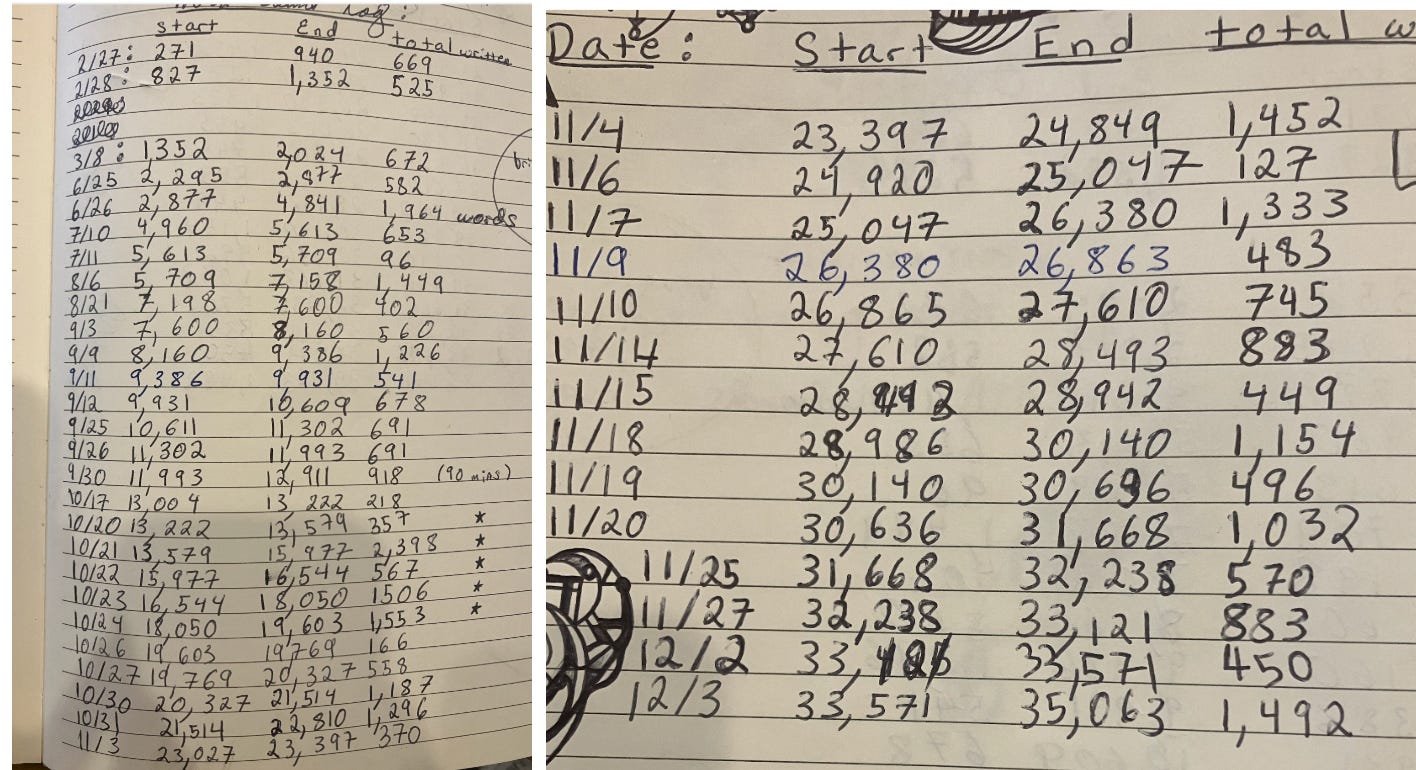 Log:
Start End total written
2/27: 271 940 669
2/28: 827 1,352 525
3/8: 1,352 2,024 672
6/25 2,295 2,877 582
6/26 2,877 4,841 1,964 words
7/10 4,960 5,613 653
7/11 5,613 5,709 96
8/6 5,709 7,158 1,449
8/21 7,198 7,600 402
9/3 7,600 8,160 560
9/9 8,160 9,386 1,226
9/11 9,386 9,931 541
9/12 9,931 10,609 678
9/25 10,611 11,302 691
9/26 11,302 11,993 691
9/30 11,993 12,911 918 (90 mins)
10/17 13,004 13,222 218
10/20 13,222 13,579 357 *
10/21 13,579 15,977 2,398 *
10/22 15,977 16,544 567 *
10/23 16,544 18,050 1506 *
10/24 18,050 19,603 1,553 *
10/26 19,603 19769 166
10/27 19,769 20,327 558
10/30 20,327 21,514 1,187
10/31 21,514 22,810 1,296
11/3 23,027 23,397 370
Date: Start End total w
11/4 23,397 24,849 1,452
11/6 24,920 25,047 127
11/7 25,047 26,380 1,333
11/9 26,380 26,863 483
11/10 26,865 27,610 745
11/14 27,610 28,493 883
11/15 28,493 28,942 449
11/18 28,986 30,140 1,154
11/19 30,140 30,636 496
11/20 30,636 31,668 1,032
11/25 31,668 32,238 570
11/27 32,238 33,121 883
12/2 33,571 450
12/3 33,571 35,063 1,492